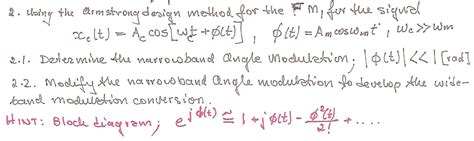 2. Using the Armstrong design method for the FM, for the signal
x_c(t) = A_c cos[ω_c t + φ(t)], φ(t) = A_m cos ω_m t, ω_c >> ω_m
2.1. Determine the narrowband Angle Modulation; |φ(t)| << 1 [rad]
2.2. Modify the narrowband Angle modulation to develop the wide-
band modulation conversion.
HINT: Block diagram; e^{jφ(t)} ≅ 1 + jφ(t) - φ²(t)/2! + ....